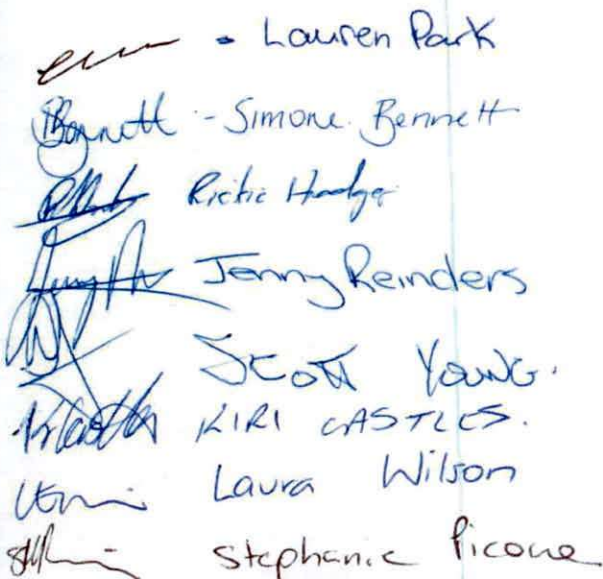 - Lauren Park
Bennett - Simone Bennett
Richie Hodge
Jenny Reinders
SCOTT YOUNG.
KIRI CASTLES.
Laura Wilson
Stephanie Picone